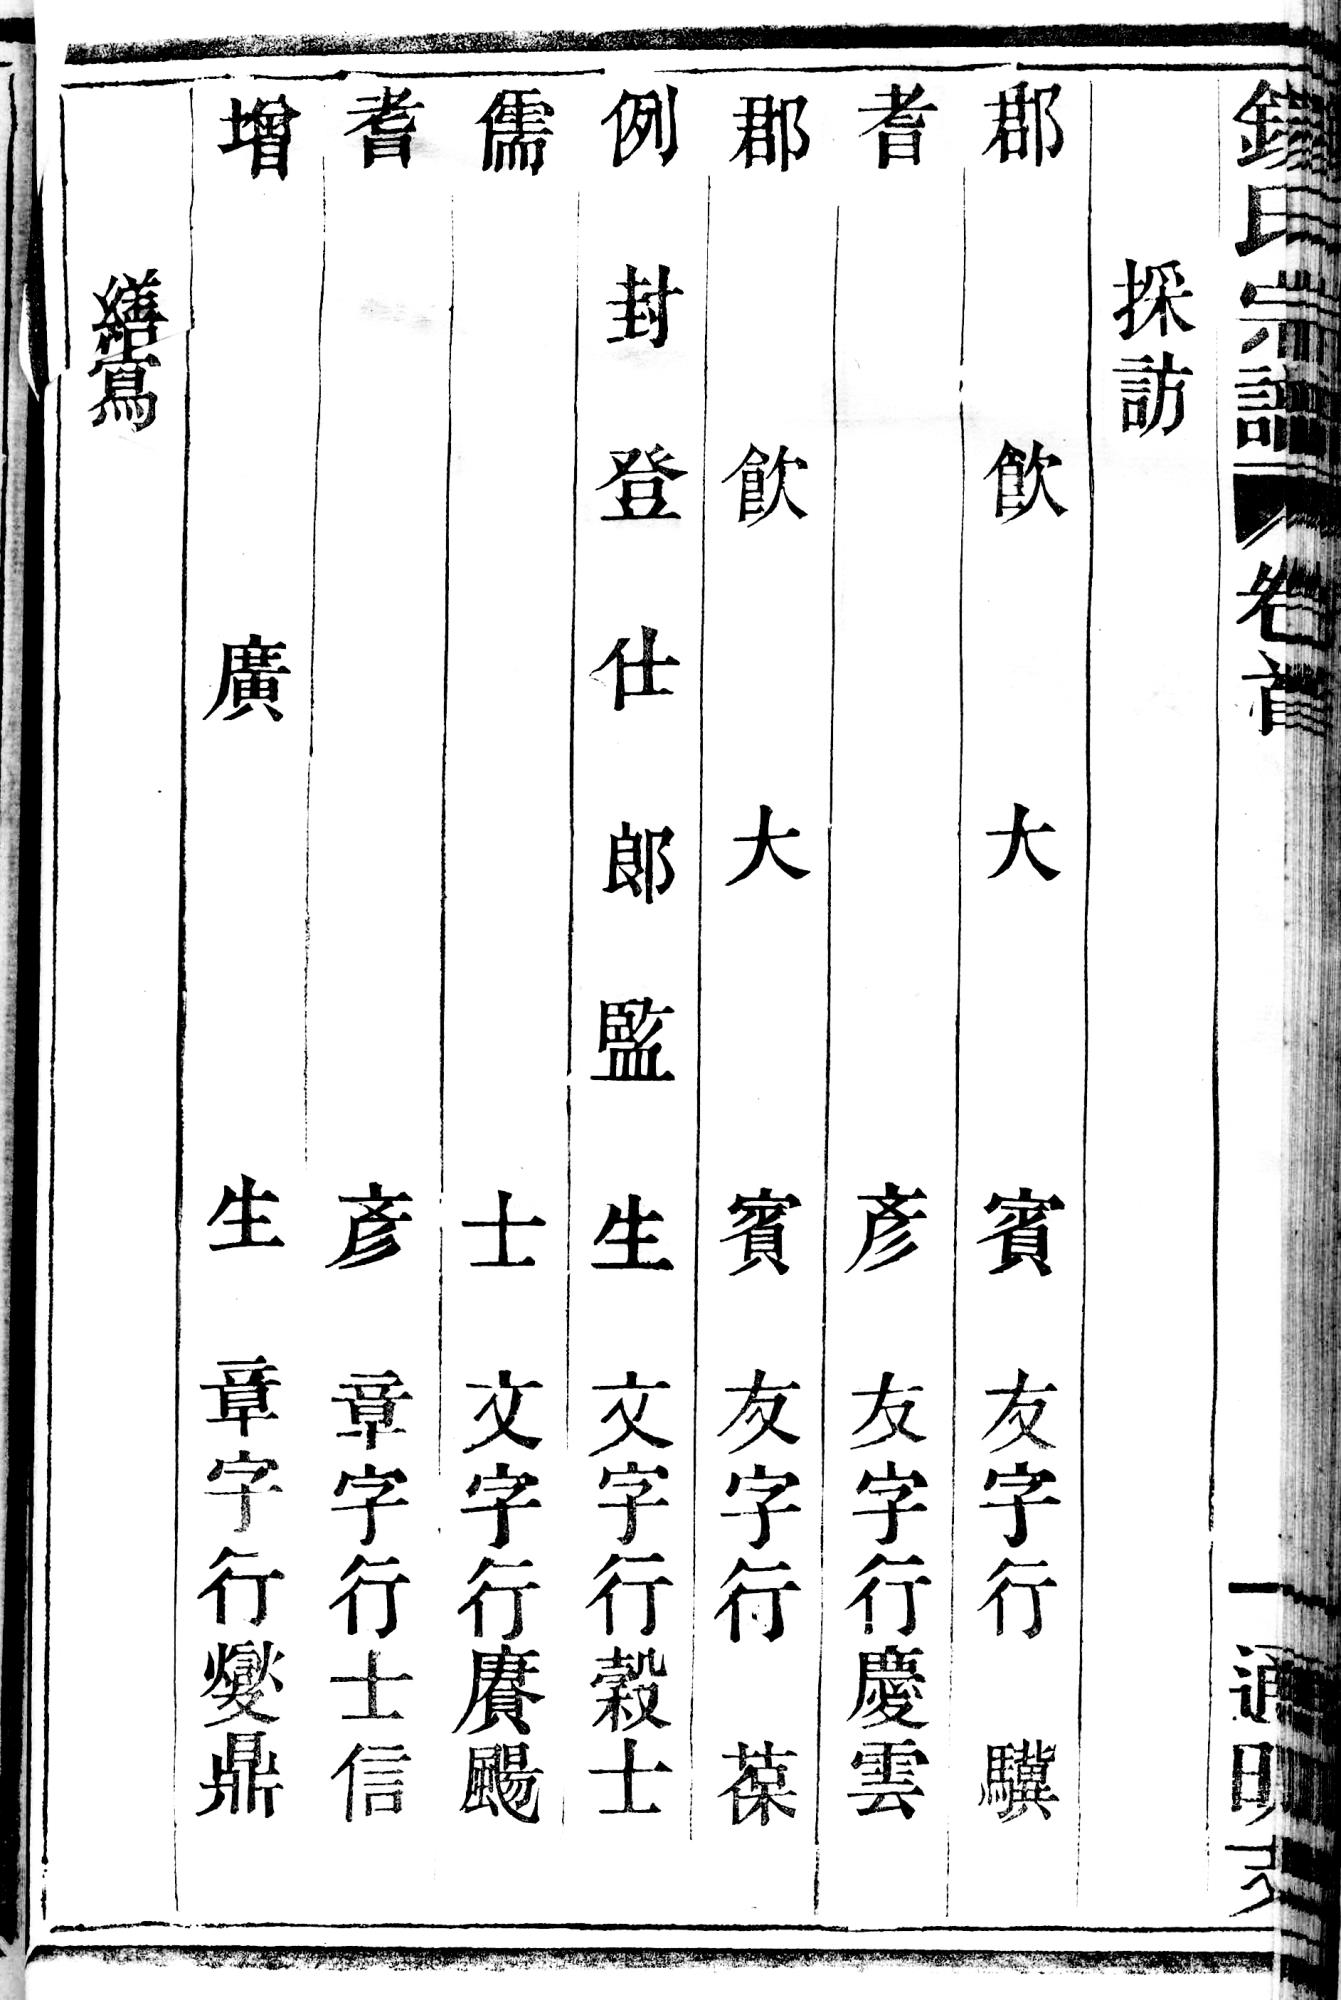 氏宗譜 卷首 一 通明
採訪
郡飲大賓 友字行驥
耆彥 友字行慶雲
郡飲大賓 友字行葆
例封登仕郎監生 文字行穀士
儒士 文字行賡颺
耆彥 章字行士信
增廣生 章字行燮鼎
繕寫